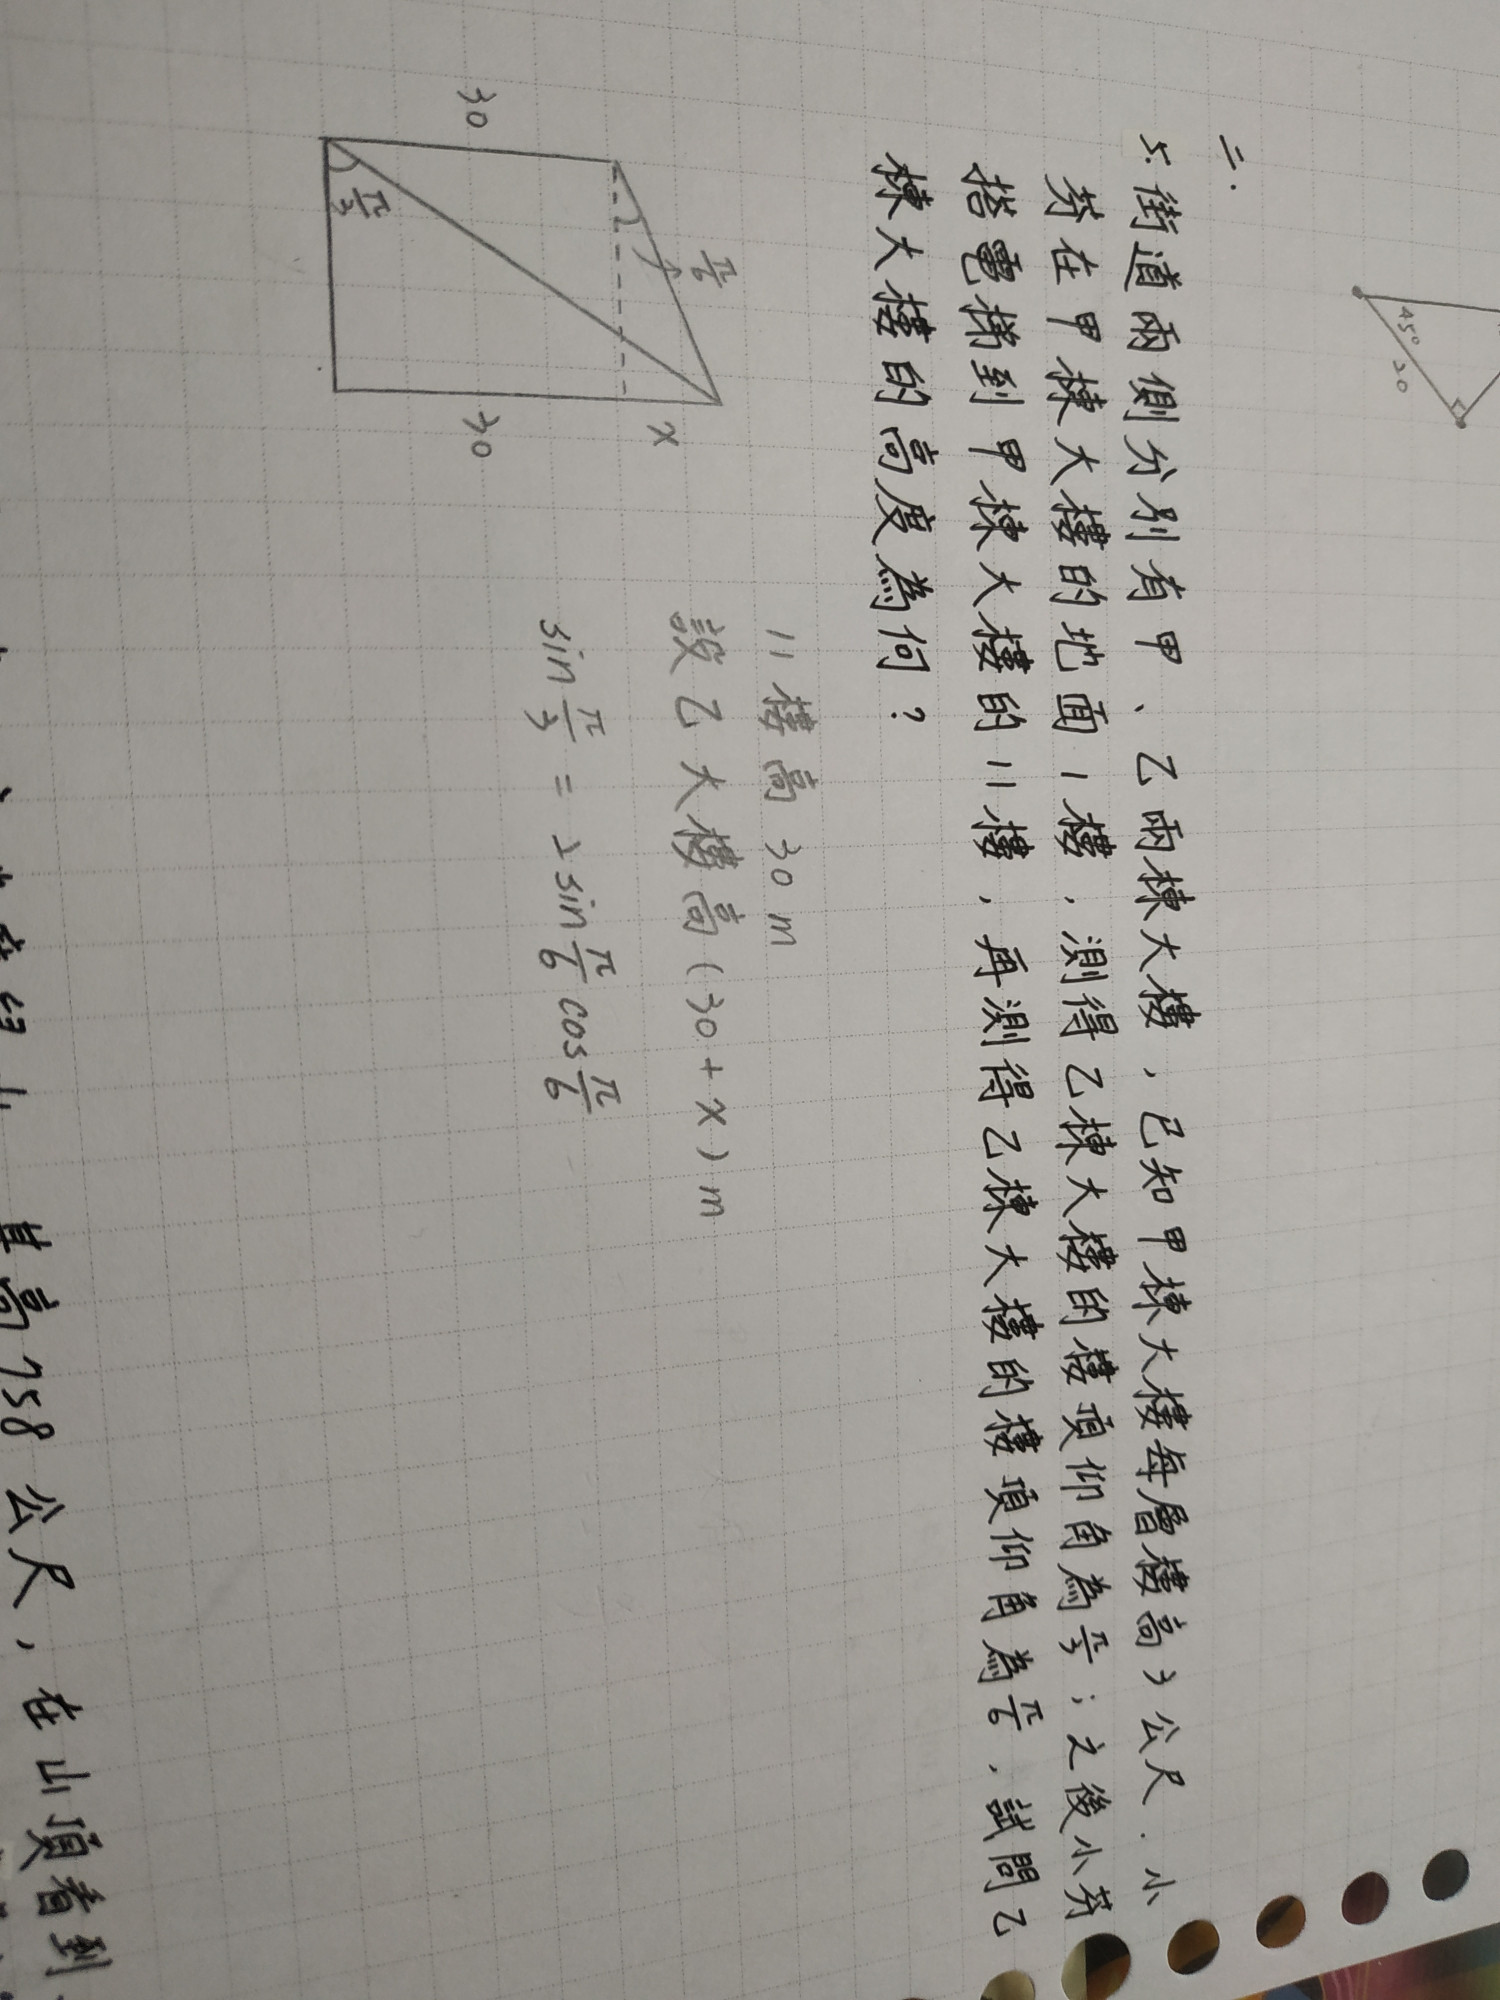 45°
20
二.
5. 街道兩側分別有甲、乙兩棟大樓,已知甲棟大樓每層樓高3公尺.小
芬在甲棟大樓的地面1樓,測得乙棟大樓的樓頂仰角為π/3;之後小芬
搭電梯到甲棟大樓的11樓,再測得乙棟大樓的樓頂仰角為π/6,試問乙
棟大樓的高度為何?
π/6
x
30
30
π/3
11樓高30m
設乙大樓高(30+x)m
sin π/3 = 2 sin π/6 cos π/6
其高758公尺,在山頂看到